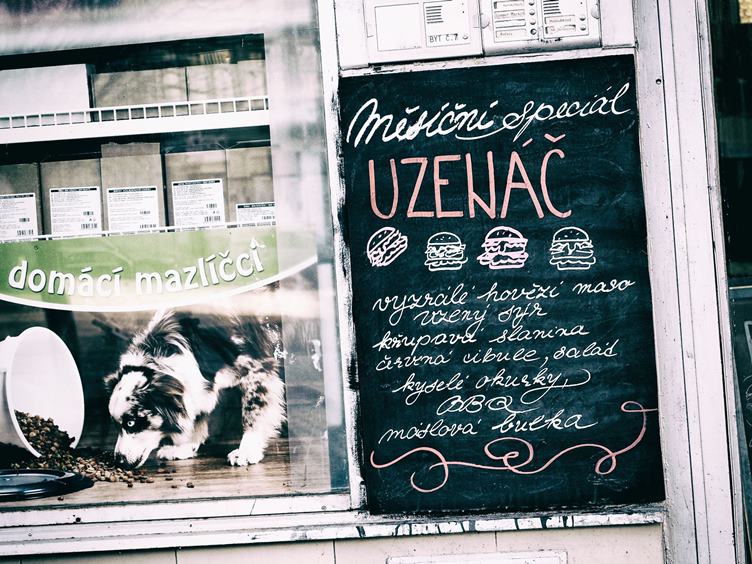 BYT č.7
domácí mazlíčci
Měsíční speciál
UZENÁČ
vyzrálé hovězí maso
uzený sýr
křupavá slanina
červená cibule, salád
kyselé okurky,
BBQ
máslová bulka